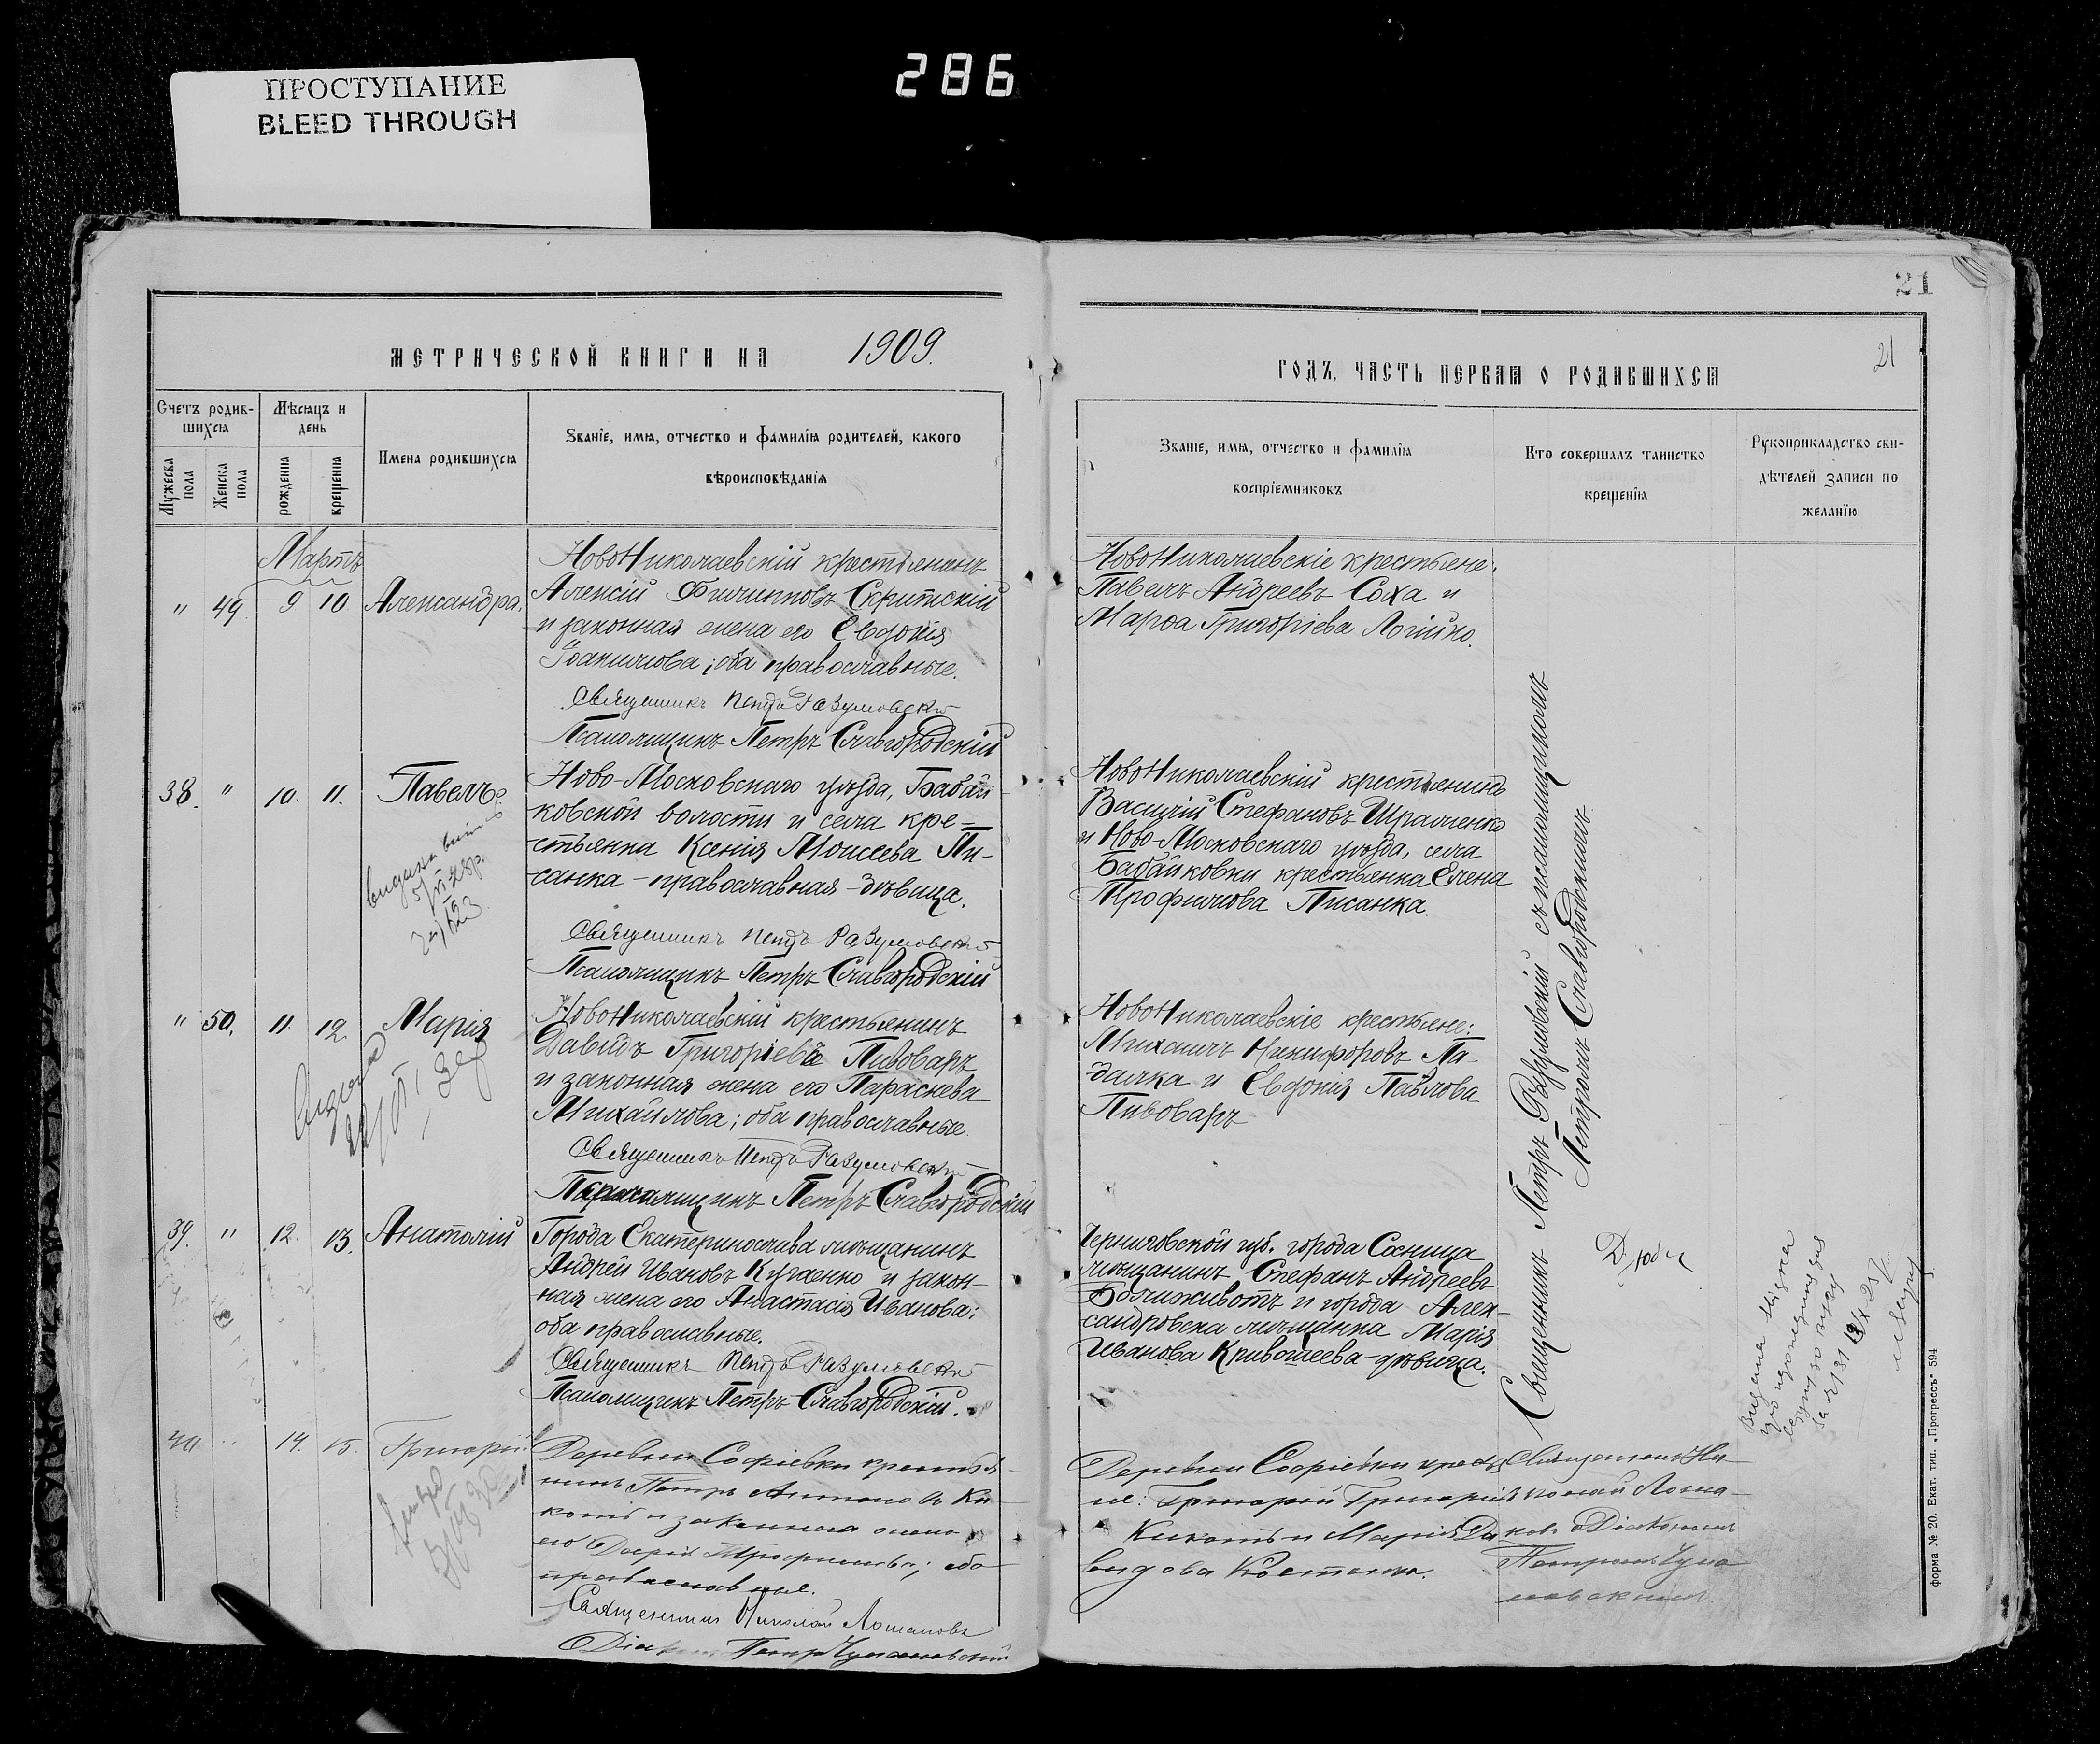 286
ПРОСТУПАНИЕ
BLEED THROUGH
21
21
МЕТРИЧЕСКОЙ КНИГИ НА 1909.
ГОДЪ, ЧАСТЬ ПЕРВАЯ О РОДИВШИХСЯ
Счетъ родив-
шихся
Мужеска
пола
Женска
пола
Мѣсяцъ и
день
рожденія
крещенія
Имена родившихся
Званіе, имя, отчество и фамилія родителей, какого
вѣроисповѣданія
Званіе, имя, отчество и фамилія
воспріемниковъ
Кто совершалъ таинство
крещенія
Рукоприкладство сви-
дѣтелей записи по
желанію
Мартъ
" 49. 9 10 Александра.
НовоНиколаевскій крестьянинъ
Алексій Филипповъ Скритскій
и законная жена его Евдокія
Іоакимова; оба православные.
Священникъ Петръ Разумовскій
Псаломщикъ Петръ Славгородскій
НовоНиколаевскіе крестьяне:
Павелъ Андреевъ Соха и
Марѳа Григоріева Логійко.
38. " 10. 11. Павелъ
Ново-Московскаго уѣзда, Бабай-
ковской волости и села кре-
стьянка Ксенія Моисеева Пи-
санка - православная - дѣвица.
Священникъ Петръ Разумовскій
Псаломщикъ Петръ Славгородскій
НовоНиколаевскій крестьянинъ
Василій Стефановъ Шрамченко
и Ново-Московскаго уѣзда, села
Бабайковки крестьянка Елена
Трофимова Писанка.
" 50. 11. 12. Марія
НовоНиколаевскій крестьянинъ
Давидъ Григоріевъ Пивоваръ
и законная жена его Параскева
Михайлова; оба православные.
Священникъ Петръ Разумовскій
Псаломщикъ Петръ Славгородскій
НовоНиколаевскіе крестьяне:
Михаилъ Никифоровъ Га-
далка и Евдокія Павлова
Пивоваръ
39. " 12. 13. Анатолій
Города Екатеринослава мѣщанинъ
Андрей Ивановъ Кугаенко и закон-
ная жена его Анастасія Иванова;
оба православные.
Священникъ Петръ Разумовскій
Псаломщикъ Петръ Славгородскій.
Черниговской губ. города Сосница
мѣщанинъ Стефанъ Андреевъ
Болиживотъ и города Алек-
сандровска мѣщанка Марія
Иванова Кривошеева - дѣвица.
Священникъ Петръ Разумовскій съ псаломщикомъ
Петромъ Славгородскимъ
40. " 14. 15. Григорій
Деревни Софіевки крестья-
нинъ Петръ Антоновъ Ки-
коть и законная жена
его Дарія Трофимова; оба
православные.
Священникъ Николай Ломановъ
Діаконъ Петръ Чумановскій
Деревни Софіевки крестья
не: Григорій Григоріевъ
Кикоть и Марія Да
видова Костенко.
Священникъ Ни-
колай Лома-
новъ с Діакономъ
Петромъ Чума-
новскимъ.
форма № 20. Екат. тип. „Прогрессъ" 594